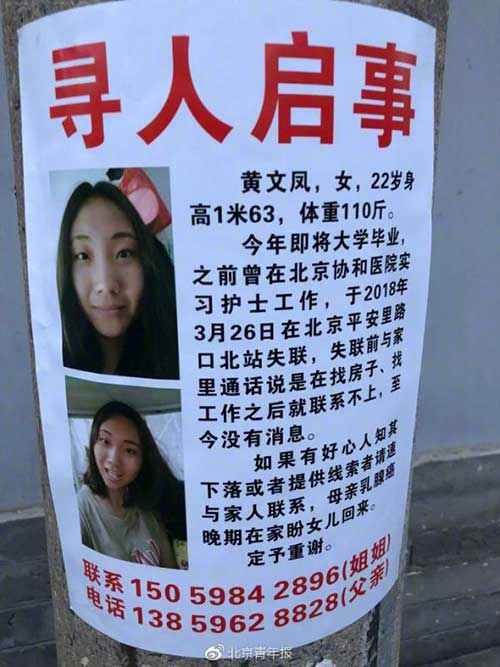 寻人启事
黄文凤，女，22岁身
高1米63，体重110斤。
今年即将大学毕业，
之前曾在北京协和医院实
习护士工作，于2018年
3月26日在北京平安里路
口北站失联，失联前与家
里通话说是在找房子、找
工作之后就联系不上，至
今没有消息。
如果有好心人知其
下落或者提供线索者请速
与家人联系，母亲乳腺癌
晚期在家盼女儿回来。
定予重谢。
联系 150 5984 2896(姐姐)
电话 138 5962 8828(父亲)
北京青年报